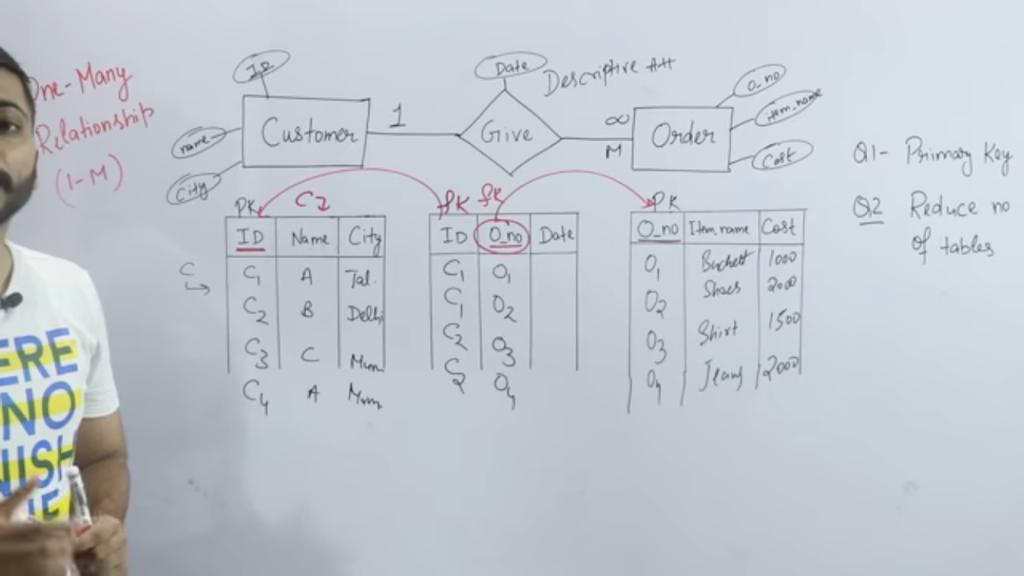 One-Many
Relationship
(1-M)
ID
name
City
Customer
1
Date
Descriptive Att
Give
∞
M
Order
O_no
Item_name
Cost
Q1- Primary Key
Q2 Reduce no
of tables
PK C2
ID Name City
C1 A Jal.
C2 B Delhi
C3 C Mum
C4 A Mum
C
fk fk
ID O_no Date
C1 O1
C1 O2
C2 O3
C2 O4
PK
O_no Item_name Cost
O1 1000
O2 Shoes 2000
O3 Shirt 1500
O4 Jeans 2000
ERE
NO
NISH